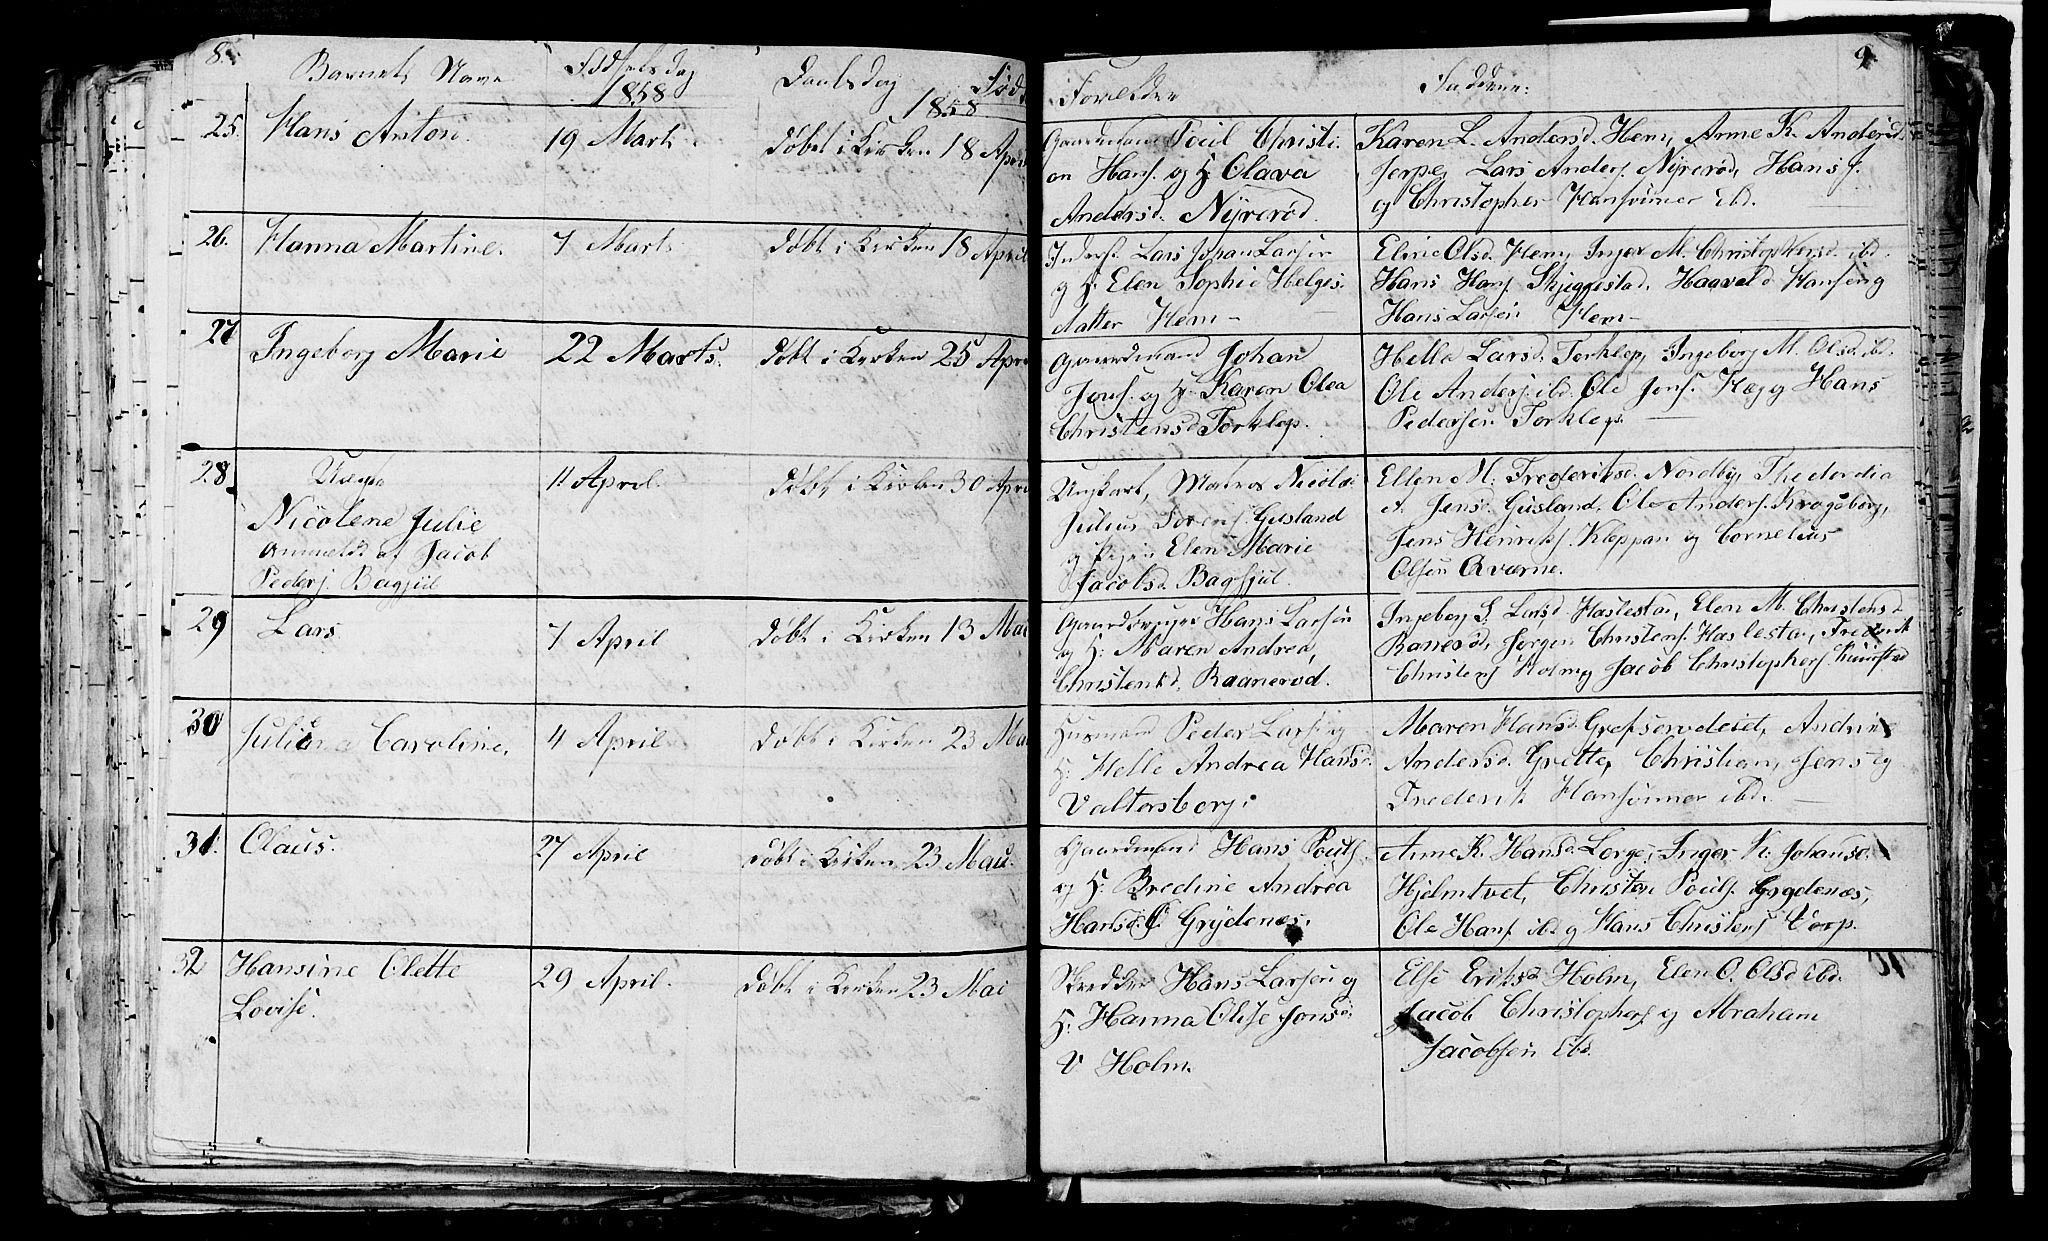 8.
Barnets Navn
Fødselsdag
1858
Daabsdag
1858.
25.
Hans Anton.
19 Marts
døbt i Kirken 18 April
26.
Hanna Martine.
7 Marts
døbt i Kirken 18 April
27
Ingeborg Marie
22 Marts.
døbt i Kirken 25 Apri
28.
Uægte
Nicolene Julie
anmeldt af Jacob
Peders. Bagjul
11 April.
døbt i Kirken 30 Apri
29
Lars
7 April
døbt i Kirken 13 Mai
30
Juliana Caroline.
4 April
døbt i Kirken 23 Ma
31.
Claus.
27 April
døbt i Kirken 23 Mai.
32
Hansine Olette
Lovise.
29 April.
døbt i Kirken 23 Mai
9
Forældre
Faddere:
Gaardmand Poul Christi-
an Hans. og H: Olava
Andersd. Nyrerød.
Karen L. Andersd. Hem, Anne K. Andersd.
Jerpe, Lars Anders. Nyrerød, Hans J.
og Christopher Hansønner ibd.
Inders. Lars Johan Larsen
og H: Elen Sophie Helges-
datter Hem -
Eline Olsd. Hem, Inger M. Christophersd. ibd.
Hans Hans. Skjeggestad, Haavald Hansen og
Hans Larsen Hem -
Gaardmand Johan
Jons. og H: Karen Olea
Christensd Torklep.
Helle Larsd. Torklep, Ingeborg M. Olsd. ibd.
Ole Anders. ibd. Ole Jons. Hæg og Hans
Pedersen Torklep.
Ungkarl, Matros Nicolai
Julius Sørens. Gusland
og Pigen Elen Marie
Jacobsd Bagjul.
Ellen M. Frederiksd. Nordby, Thedordia
A. Jensd. Gusland, Ole Anders. Krogsborg,
Jens Henriks. Kleppan og Cornelius
Olsen Qværne.
Gaardbruger Hans Larsen
og H: Maren Andrea
Christensd, Raanerød.
Ingeborg S. Larsd Haslestad, Elen M. Christensd
Ranerød, Jørgen Christens. Haslestad, Frederik
Christens Holm og Jacob Christophers.
Husmand Peder Larsen og
H: Helle Andrea Hansd
Valtersborg.
Maren Hansd Grefserødeiet, Andrine
Andersd. Grette, Christian, Jens og
Frederik Hansønner ibd.
Gaardmand Hans Pouls.
og H: Bredine Andrea
Hansd. Grydenæs.
Anne K. Hansd Lerge, Inger K. Johansd.
Hjelmtvet, Christen Pouls. Grydenæs,
Ole Hans ibd og Hans Christens Vorp.
Skredder Hans Larsen og
H: Hanna Olise Jonsd:
V Holm.
Else Eriksd Holm, Elen O. Olsd ibd.
Jacob Christophers og Abraham
Jacobsen ibd.